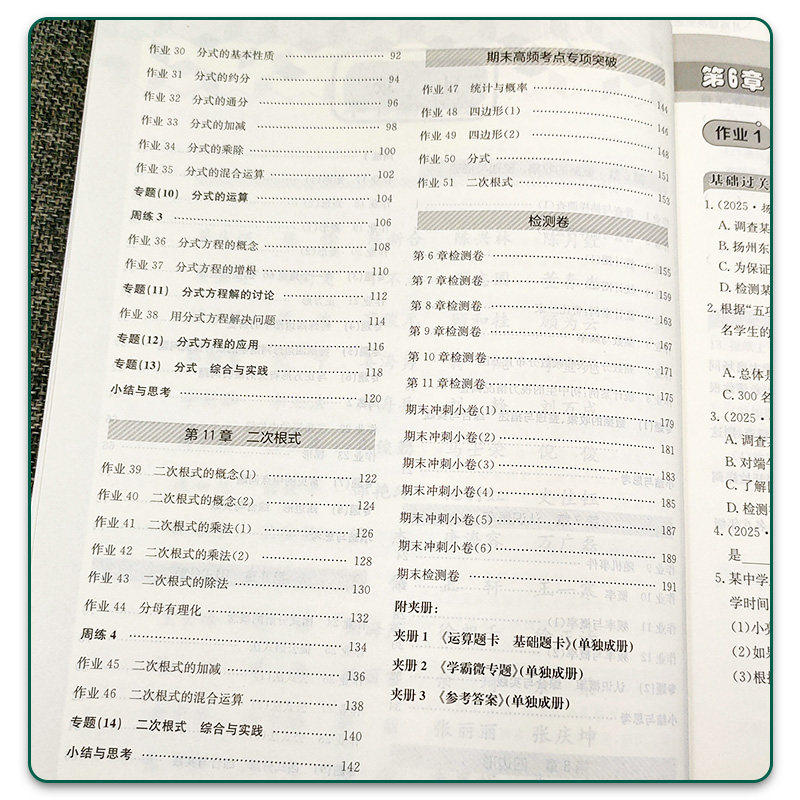 作业 30 分式的基本性质 92
作业 31 分式的约分 94
作业 32 分式的通分 96
作业 33 分式的加减 98
作业 34 分式的乘除 100
作业 35 分式的混合运算 102
专题(10) 分式的运算 104
周练 3 106
作业 36 分式方程的概念 108
作业 37 分式方程的增根 110
专题(11) 分式方程解的讨论 112
作业 38 用分式方程解决问题 114
专题(12) 分式方程的应用 116
专题(13) 分式 综合与实践 118
小结与思考 120
第 11 章 二次根式
作业 39 二次根式的概念(1) 122
作业 40 二次根式的概念(2) 124
作业 41 二次根式的乘法(1) 126
作业 42 二次根式的乘法(2) 128
作业 43 二次根式的除法 130
作业 44 分母有理化 132
周练 4 134
作业 45 二次根式的加减 136
作业 46 二次根式的混合运算 138
专题(14) 二次根式 综合与实践 140
小结与思考 142
期末高频考点专项突破
作业 47 统计与概率 144
作业 48 四边形(1) 146
作业 49 四边形(2) 148
作业 50 分式 151
作业 51 二次根式 153
检测卷
第 6 章检测卷 155
第 7 章检测卷 159
第 8 章检测卷 163
第 9 章检测卷 167
第 10 章检测卷 171
第 11 章检测卷 175
期末冲刺小卷(1) 179
期末冲刺小卷(2) 181
期末冲刺小卷(3) 183
期末冲刺小卷(4) 185
期末冲刺小卷(5) 187
期末冲刺小卷(6) 189
期末检测卷 191
附夹册：
夹册 1 《运算题卡 基础题卡》(单独成册)
夹册 2 《学霸微专题》(单独成册)
夹册 3 《参考答案》(单独成册)
第6章
作业 1
基础过关
1.(2025·扬
A. 调查某
B. 扬州东
C. 为保证
D. 检测某
2. 根据“五项
名学生的
A. 总体是
C. 300 名
3.(2025·
A. 调查
B. 对端午
C. 了解
D. 检测
4.(2025·
是
5. 某中学
学时间
(1)小亮
(2)如果
(3)根据